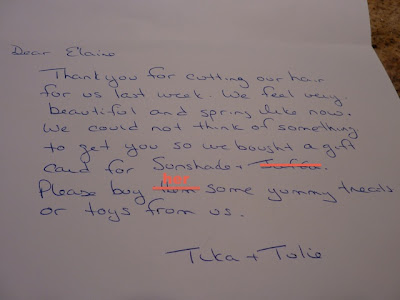 Dear Elaine
Thank you for cutting our hair
for us last week. We feel very
beautiful and spring like now.
We could not think of something
to get you so we bought a gift
card for Sunshade +
her
Please buy them some yummy treats
or toys from us.
Tika + Tulie